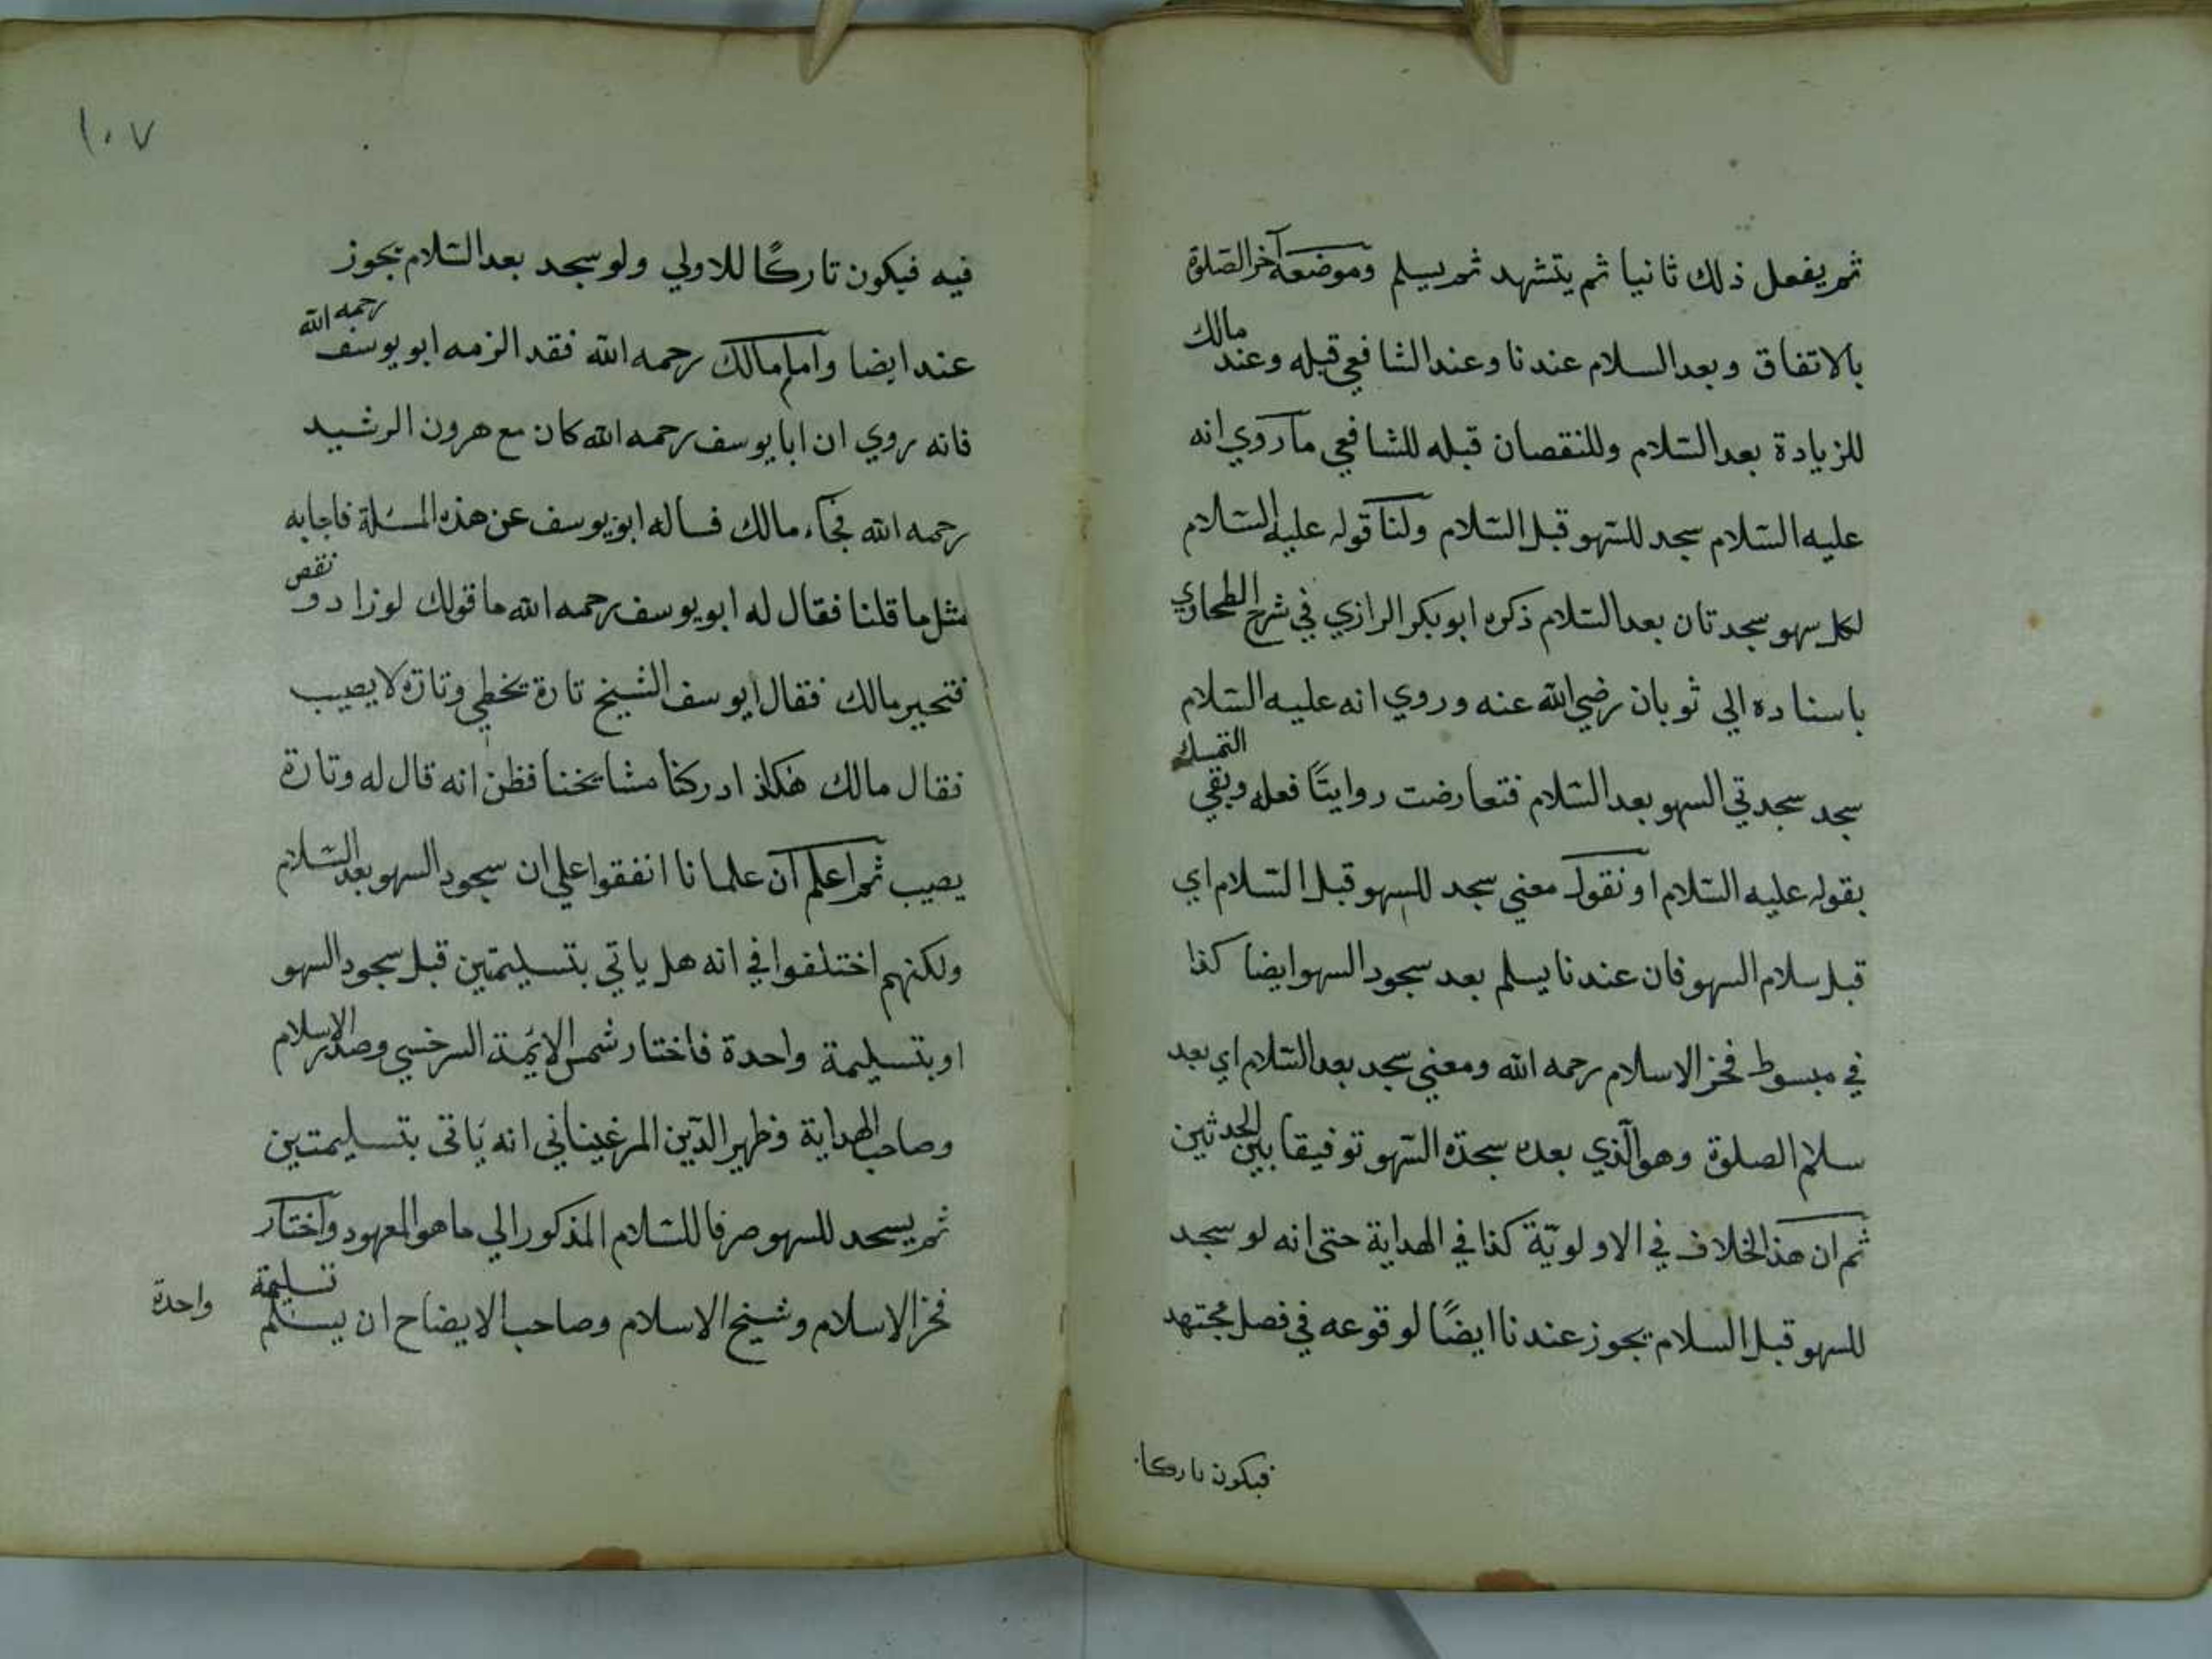 ثم يفعل ذلك ثانيا ثم يتشهد ثم يسلم وموضعه آخر الصلوة
بالاتفاق وبعد السلام عندنا وعند الشافعي قبله وعند مالك
للزيادة بعد السّلام وللنقصان قبله للشافعي ما روي انه
عليه السّلام سجد للسّهو قبل السّلام ولنا قوله عليه السّلام
لكل سهو سجدتان بعد السّلام ذكره ابو بكر الرازي في شرح الطحاوي
باسناده الي ثوبان رضي الله عنه وروي انه عليه السّلام
سجد سجدتي السهو بعد السّلام فتعارضت روايتًا فعله وبقي التمسك
بقوله عليه السّلام او نقول معني سجد للسهو قبل السّلام اي
قبل سلام السهو فان عندنا يسلم بعد سجود السهو ايضا كذا
في مبسوط فخر الاسلام رحمه الله ومعني سجد بعد السّلام اي بعد
سلام الصلوة وهو الّذي بعده سجدة السّهو توفيقا بين الحدثين
ثم ان هذ الخلاف في الاولويّة كذا في الهداية حتى انه لو سجد
للسهو قبل السلام يجوز عندنا ايضًا لوقوعه في فصل مجتهد
فيكون تاركا
١٠٧
فيه فيكون تاركًا للاولي ولو سجد بعد السّلام يجوز
عنده ايضا وامام مالك رحمه الله فقد الزمه ابو يوسف رحمه الله
فانه روي ان ابا يوسف رحمه الله كان مع هرون الرشيد
رحمه الله فجاء مالك فساله ابو يوسف عن هذه المسئلة فاجابه
مثل ما قلنا فقال له ابو يوسف رحمه الله ما قولك لو زاد و نقص
فتحير مالك فقال ابو سف الشيخ تارة يخطي وتارة لا يصيب
فقال مالك هكذ ادركنا مشايخنا فظن انه قال له وتارة
يصيب ثم اعلم ان علمانا اتفقوا علي ان سجود السهو بعد السّلام
ولكنهم اختلفوا في انه هل ياتي بتسليمتين قبل سجود السهو
او بتسليمة واحدة فاختار شمس الائمة السرخسي وصدر الاسلام
وصاحب الهداية وظهير الدّين المرغيناني انه ياتى بتسليمتين
ثم يسجد للسهو صرفا للسّلام المذكور الي ما هو المعهود واختار
فخر الاسلام وشيخ الاسلام وصاحب الايضاح ان يسلم تسليمة واحدة